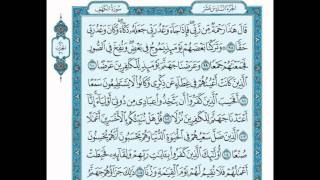 سُورَةُ الْكَهْفِ
الجُزْءُ السَّادِسَ عَشَرَ
قَالَ هَٰذَا رَحْمَةٌ مِّن رَّبِّي ۖ فَإِذَا جَآءَ وَعْدُ رَبِّي جَعَلَهُۥ دَكَّآءَ ۖ وَكَانَ وَعْدُ رَبِّي
حَقًّا ٩٨ ۞ وَتَرَكْنَا بَعْضَهُمْ يَوْمَئِذٍ يَمُوجُ فِي بَعْضٍ ۖ وَنُفِخَ فِي ٱلصُّورِ
فَجَمَعْنَٰهُمْ جَمْعًا ٩٩ وَعَرَضْنَا جَهَنَّمَ يَوْمَئِذٍ لِّلْكَٰفِرِينَ عَرْضًا ١٠٠
ٱلَّذِينَ كَانَتْ أَعْيُنُهُمْ فِي غِطَآءٍ عَن ذِكْرِي وَكَانُوا۟ لَا يَسْتَطِيعُونَ سَمْعًا ١٠١
أَفَحَسِبَ ٱلَّذِينَ كَفَرُوٓا۟ أَن يَتَّخِذُوا۟ عِبَادِي مِن دُونِيٓ أَوْلِيَآءَ ۚ إِنَّآ
أَعْتَدْنَا جَهَنَّمَ لِلْكَٰفِرِينَ نُزُلًا ١٠٢ قُلْ هَلْ نُنَبِّئُكُم بِٱلْأَخْسَرِينَ أَعْمَٰلًا ١٠٣
ٱلَّذِينَ ضَلَّ سَعْيُهُمْ فِي ٱلْحَيَوٰةِ ٱلدُّنْيَا وَهُمْ يَحْسَبُونَ أَنَّهُمْ يُحْسِنُونَ
صُنْعًا ١٠٤ أُو۟لَٰٓئِكَ ٱلَّذِينَ كَفَرُوا۟ بِـَٔايَٰتِ رَبِّهِمْ وَلِقَآئِهِۦ فَحَبِطَتْ
أَعْمَٰلُهُمْ فَلَا نُقِيمُ لَهُمْ يَوْمَ ٱلْقِيَٰمَةِ وَزْنًا ١٠٥ ذَٰلِكَ جَزَآؤُهُمْ جَهَنَّمُ